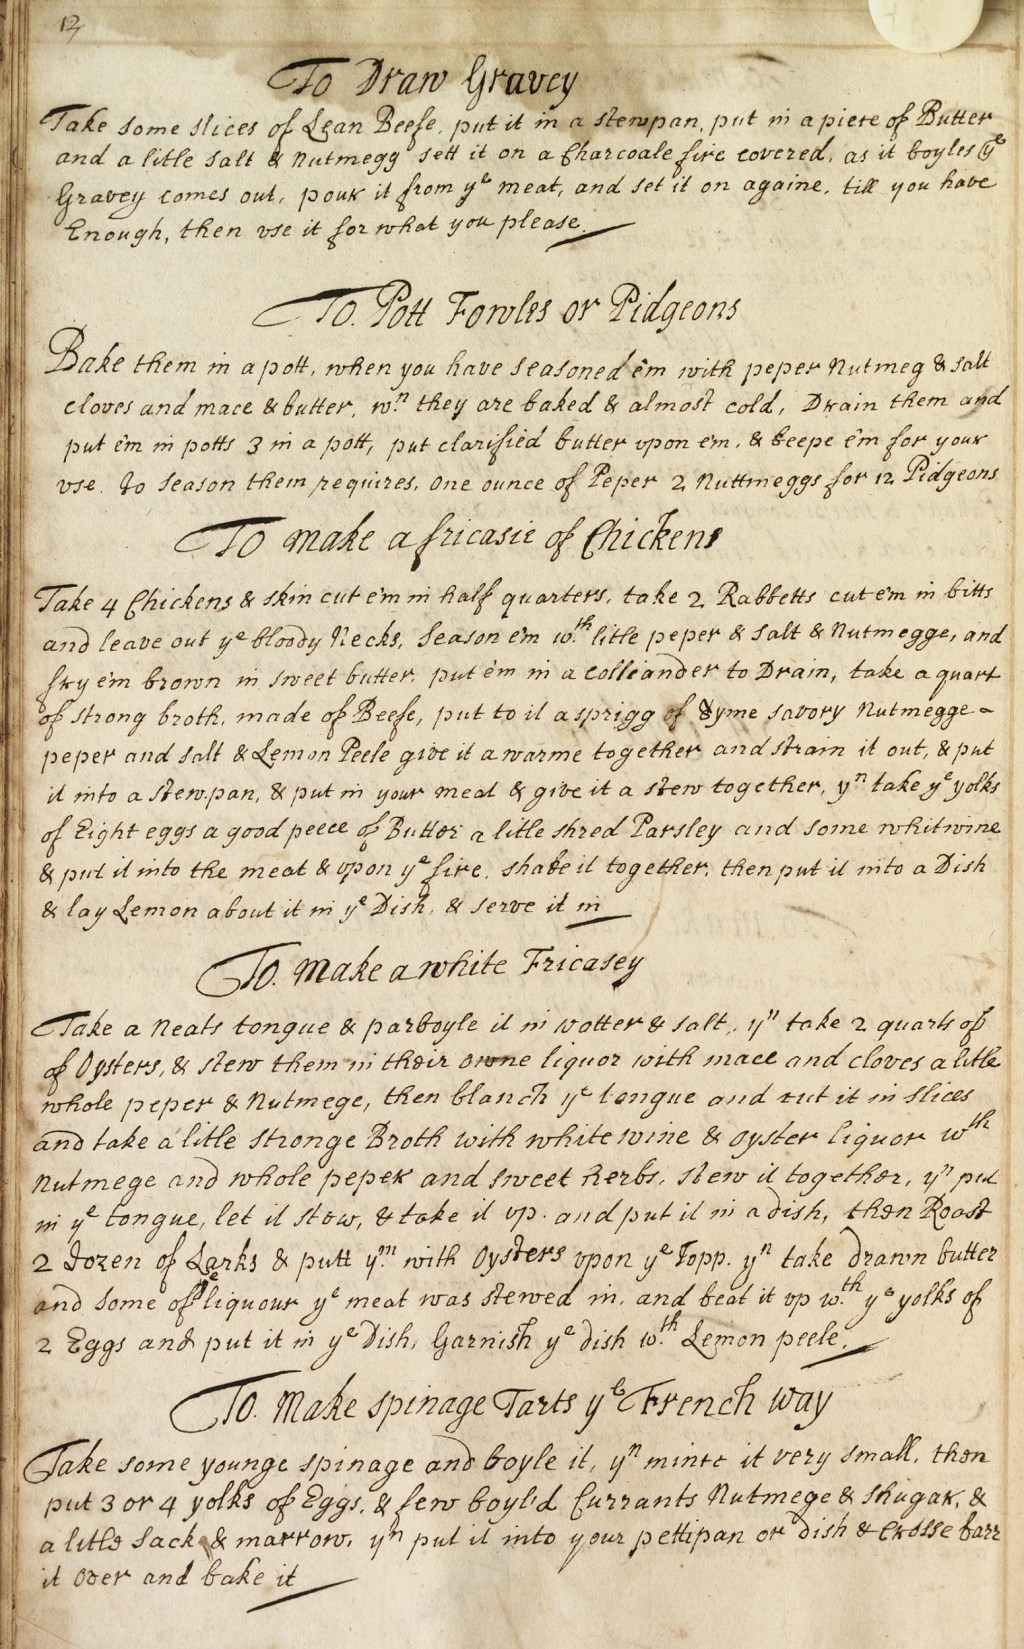 12
To Draw Gravey
Take some slices of Lean Beefe, put it in a stewpan, put in a piece of Butter
and a litle salt & Nutmegg sett it on a Charcoale fire covered, as it boyles ye
Gravey comes out, pour it from ye meat, and set it on againe, till you have
Enough, then vse it for what you please.
To. Pott Fowles or Pidgeons
Bake them in a pott, when you have seasoned em with peper Nutmeg & salt
cloves and mace & butter, wn. they are baked & almost cold, Drain them and
put em in potts 3 in a pott, put clarified butter vpon em, & keepe em for your
vse. To season them requires, one ounce of Peper 2 Nuttmeggs for 12 Pidgeons
To make a fricasie of Chickens
Take 4 Chickens & skin cut em in half quarters, take 2 Rabbetts cut em in bitts
and leave out ye bloody Necks, season em wth. litle peper & salt & Nutmegge, and
fry em brown in sweet butter, put em in a colliander to Drain, take a quart
of strong broth, made of Beefe, put to it a sprigg of tyme savory Nutmegge
peper and salt & Lemon Peele give it a warme together and strain it out, & put
it into a stewpan, & put in your meat & give it a stew together, yn take ye yolks
of Eight eggs a good peece of Butter a litle shred Parsley and some whitwine
& put it into the meat & vpon ye fire, shake it together, then put it into a Dish
& lay Lemon about it in ye Dish, & serve it in
To. make a white Fricasey
Take a Neats tongue & parboyle it in wotter & salt, yn take 2 quarts of
of Oysters, & stew them in their owne liquor with mace and cloves a litle
whole peper & Nutmege, then blanch ye tongue and cut it in slices
and take a litle stronge Broth with white wine & oyster liquor wth
Nutmege and whole peper and sweet herbs, stew it together, yn put
in ye tongue, let it stew, & take it vp. and put it in a dish, then Roast
2 dozen of Larks & putt ym. with Oysters vpon ye Topp. yn take drawn butter
and some of ye liquour ye meat was stewed in, and beat it vp wth. ye yolks of
2 Eggs and put it in ye Dish, Garnish ye dish wth. Lemon peele.
To. Make spinage Tarts ye French way
Take some younge spinage and boyle it, yn mince it very small, then
put 3 or 4 yolks of Eggs, & few boyl'd Currants Nutmege & shugar, &
a litle sack & marrow, yn put it into your pettipan or dish & Crosse barr
it over and bake it